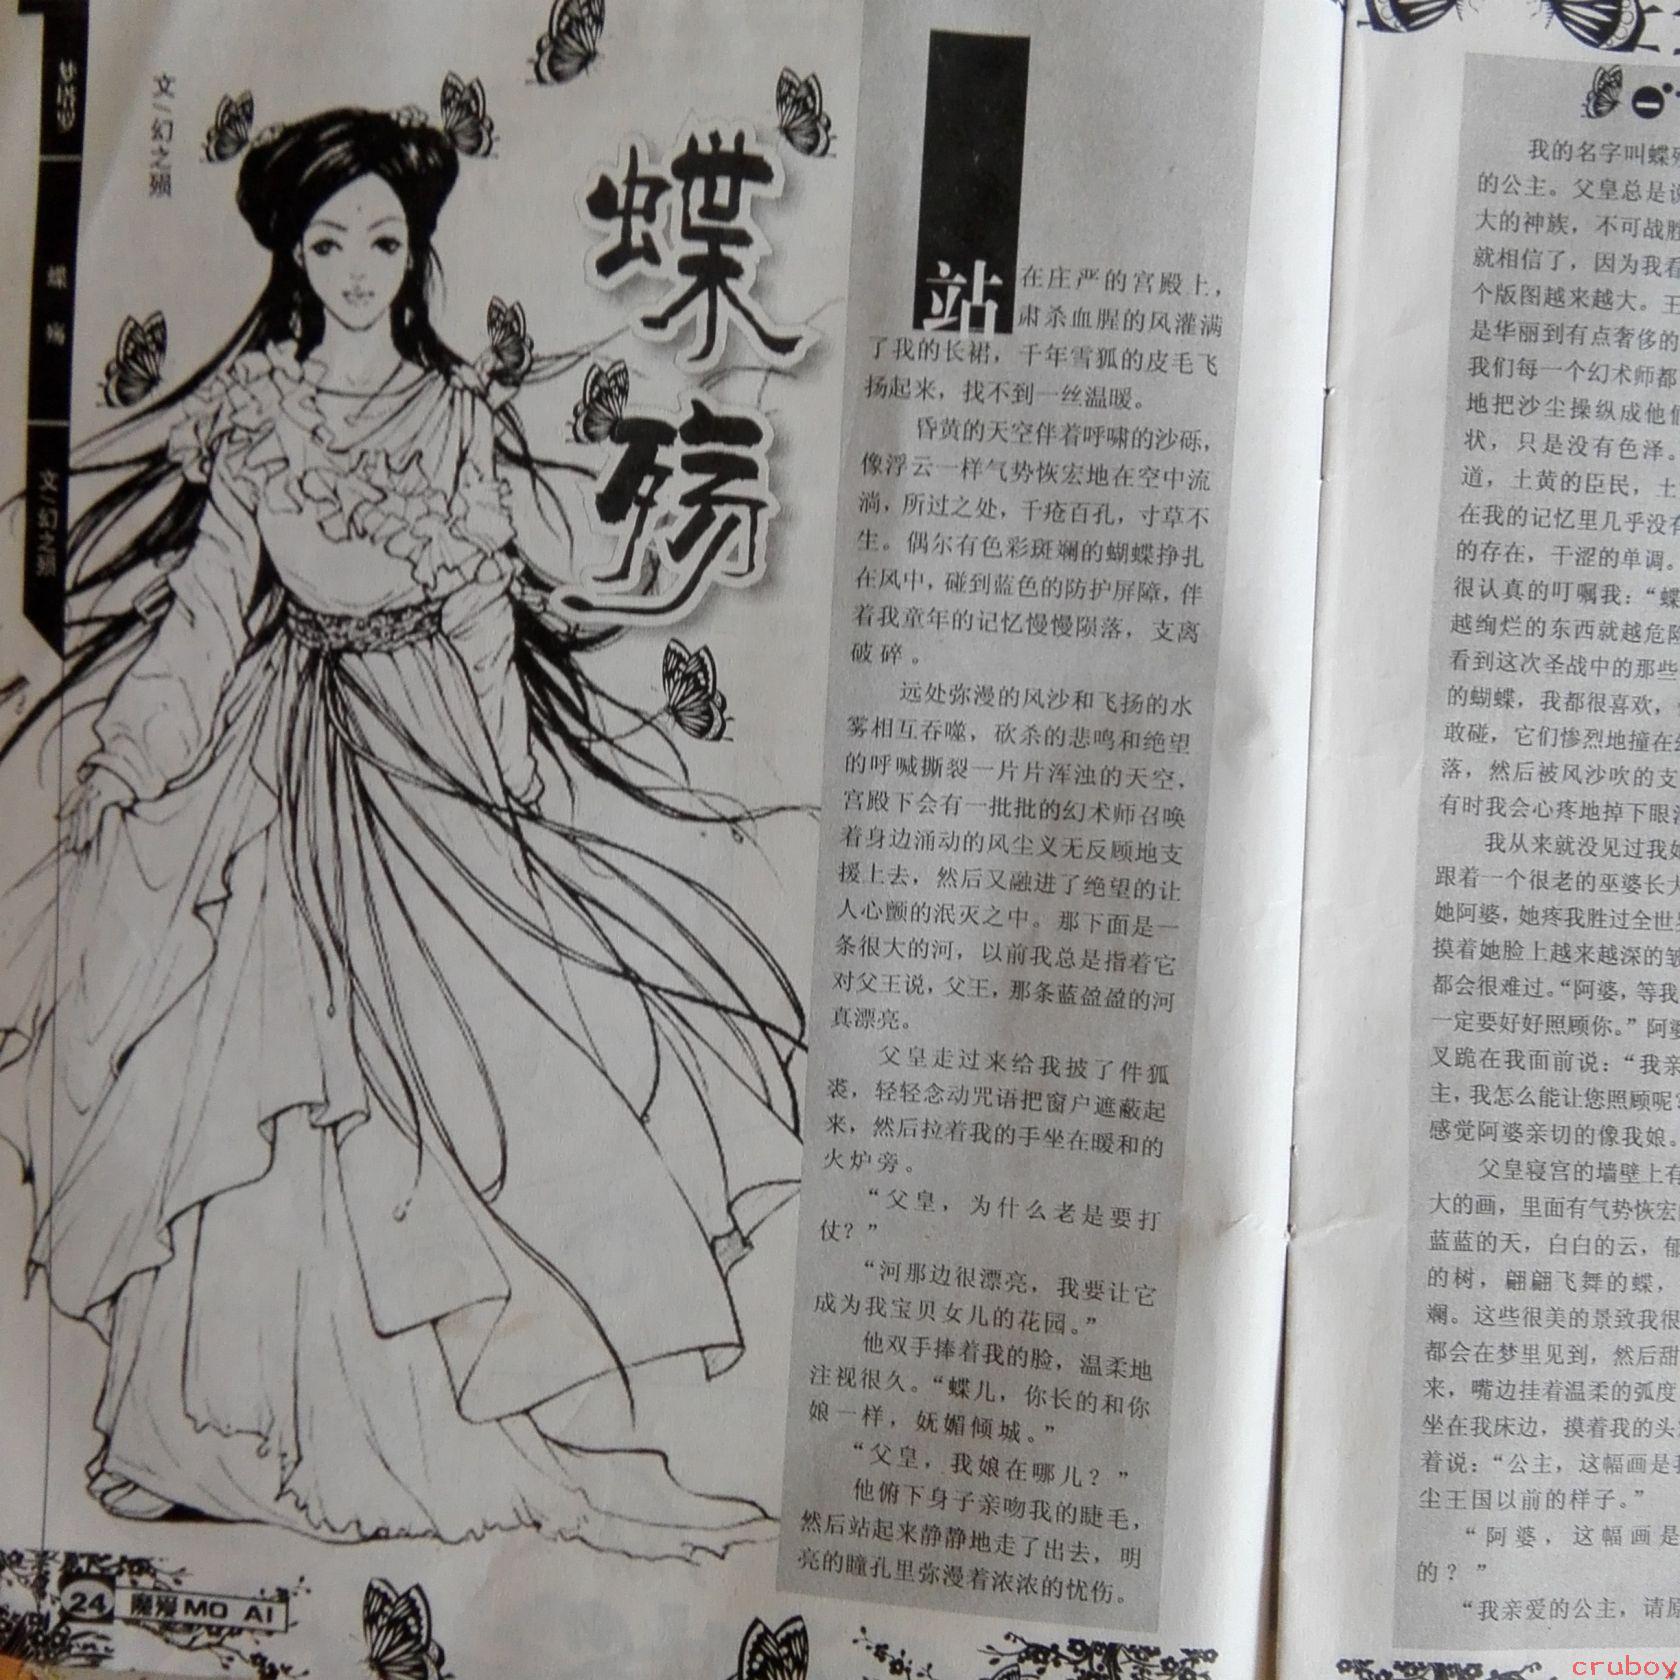 文/幻之殒
蝶殇
蝶 殇
文/幻之殒
站在庄严的宫殿上，
肃杀血腥的风灌满
了我的长裙，千年雪狐的皮毛飞
扬起来，找不到一丝温暖。
昏黄的天空伴着呼啸的沙砾，
像浮云一样气势恢宏地在空中流
淌，所过之处，千疮百孔，寸草不
生。偶尔有色彩斑斓的蝴蝶挣扎
在风中，碰到蓝色的防护屏障，伴
着我童年的记忆慢慢陨落，支离
破碎。
远处弥漫的风沙和飞扬的水
雾相互吞噬，砍杀的悲鸣和绝望
的呼喊撕裂一片片浑浊的天空，
宫殿下会有一批批的幻术师召唤
着身边涌动的风尘义无反顾地支
援上去，然后又融进了绝望的让
人心颤的泯灭之中。那下面是一
条很大的河，以前我总是指着它
对父王说，父王，那条蓝盈盈的河
真漂亮。
父皇走过来给我披了件狐
裘，轻轻念动咒语把窗户遮蔽起
来，然后拉着我的手坐在暖和的
火炉旁。
“父皇，为什么老是要打
仗？”
“河那边很漂亮，我要让它
成为我宝贝女儿的花园。”
他双手捧着我的脸，温柔地
注视很久。“蝶儿，你长的和你
娘一样，妩媚倾城。”
“父皇，我娘在哪儿？”
他俯下身子亲吻我的睫毛，
然后站起来静静地走了出去，明
亮的瞳孔里弥漫着浓浓的忧伤。
24 魔漫MO AI
一
我的名字叫蝶
的公主。父皇总是说
大的神族，不可战胜
就相信了，因为我看
个版图越来越大。王
是华丽到有点奢侈的
我们每一个幻术师都
地把沙尘操纵成他们
状，只是没有色泽。
道，土黄的臣民，土
在我的记忆里几乎没有
的存在，干涩的单调。
很认真的叮嘱我：“蝶
越绚烂的东西就越危险
看到这次圣战中的那些
的蝴蝶，我都很喜欢，
敢碰，它们惨烈地撞在
落，然后被风沙吹的支
有时我会心疼地掉下眼
我从来就没见过我
跟着一个很老的巫婆长大
她阿婆，她疼我胜过全世界
摸着她脸上越来越深的皱
都会很难过。“阿婆，等我
一定要好好照顾你。”阿婆
叉跪在我面前说：“我亲
主，我怎么能让您照顾呢
感觉阿婆亲切的像我娘。
父皇寝宫的墙壁上有
大的画，里面有气势恢宏
蓝蓝的天，白白的云，郁
的树，翩翩飞舞的蝶，
斓。这些很美的景致我很
都会在梦里见到，然后甜
来，嘴边挂着温柔的弧度
坐在我床边，摸着我的头
着说：“公主，这幅画是我
尘王国以前的样子。”
“阿婆，这幅画是
的？”
“我亲爱的公主，请原
crubox